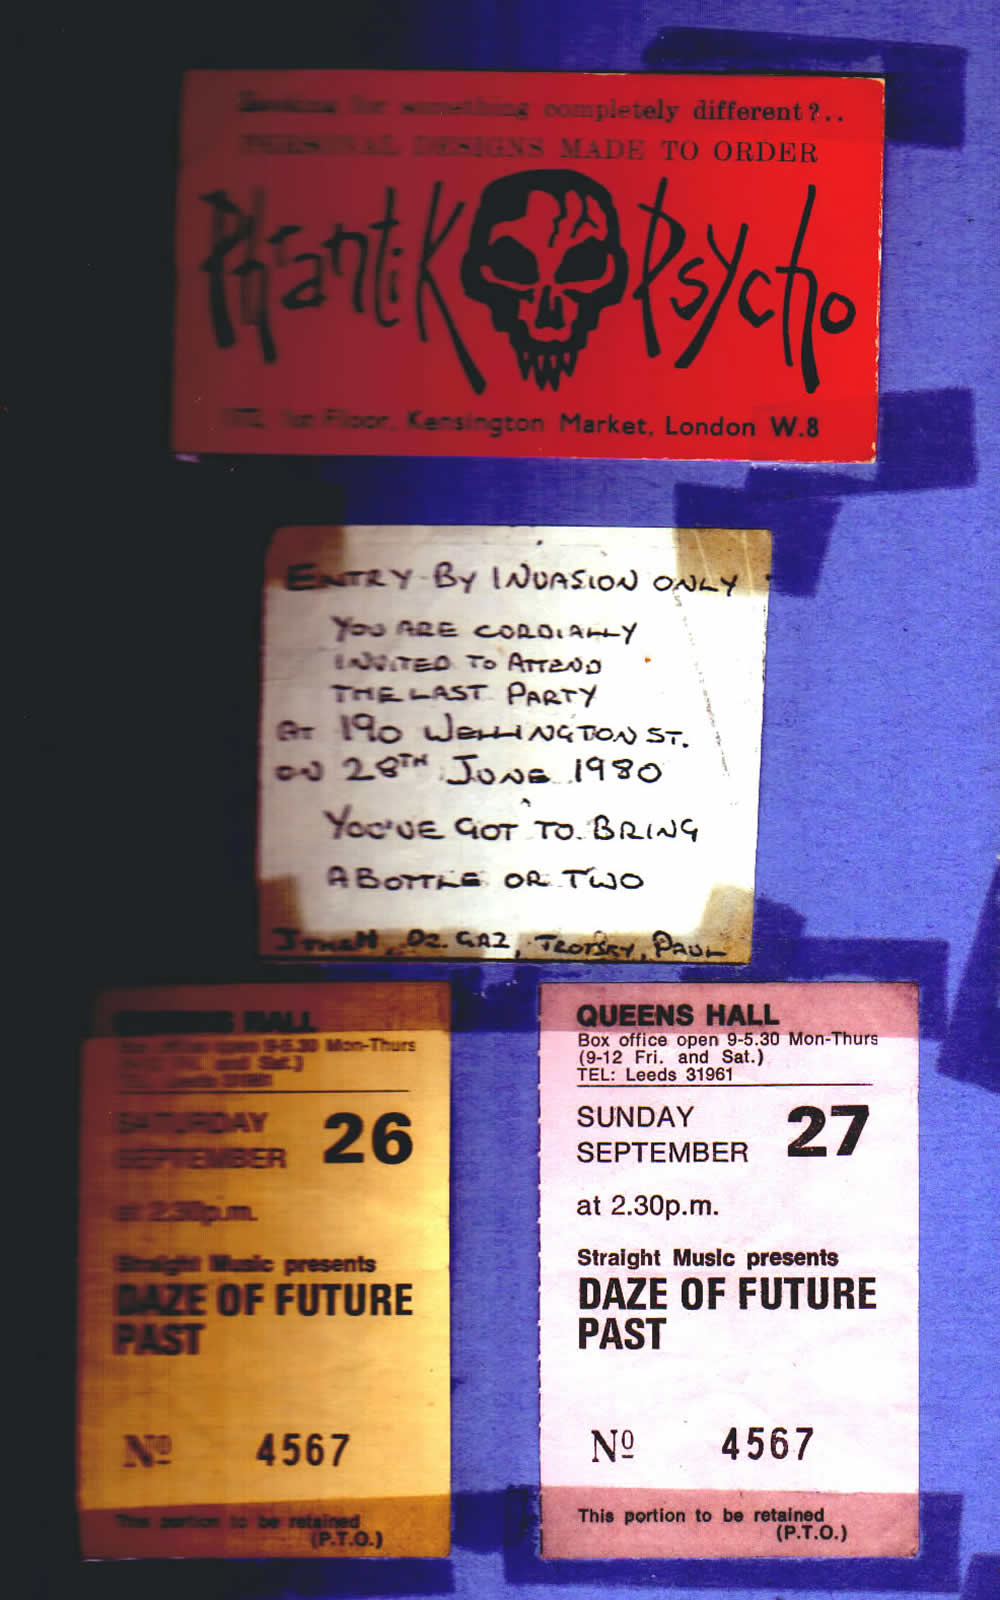 Looking for something completely different?..
PERSONAL DESIGNS MADE TO ORDER
Phrantik Psycho
1st Floor, Kensington Market, London W.8
ENTRY BY INVASION ONLY
YOU ARE CORDIALLY
INVITED TO ATTEND
THE LAST PARTY
AT 190 WELLINGTON ST.
ON 28TH JUNE 1980
YOU'VE GOT TO BRING
A BOTTLE OR TWO
GAZ, TROTSKY, PAUL
QUEENS HALL
Box office open 9-5.30 Mon-Thurs
(9-12 Fri. and Sat.)
TEL: Leeds 31961
SATURDAY
SEPTEMBER 26
at 2.30p.m.
Straight Music presents
DAZE OF FUTURE
PAST
Nº 4567
This portion to be retained
(P.T.O.)
QUEENS HALL
Box office open 9-5.30 Mon-Thurs
(9-12 Fri. and Sat.)
TEL: Leeds 31961
SUNDAY
SEPTEMBER 27
at 2.30p.m.
Straight Music presents
DAZE OF FUTURE
PAST
Nº 4567
This portion to be retained
(P.T.O.)